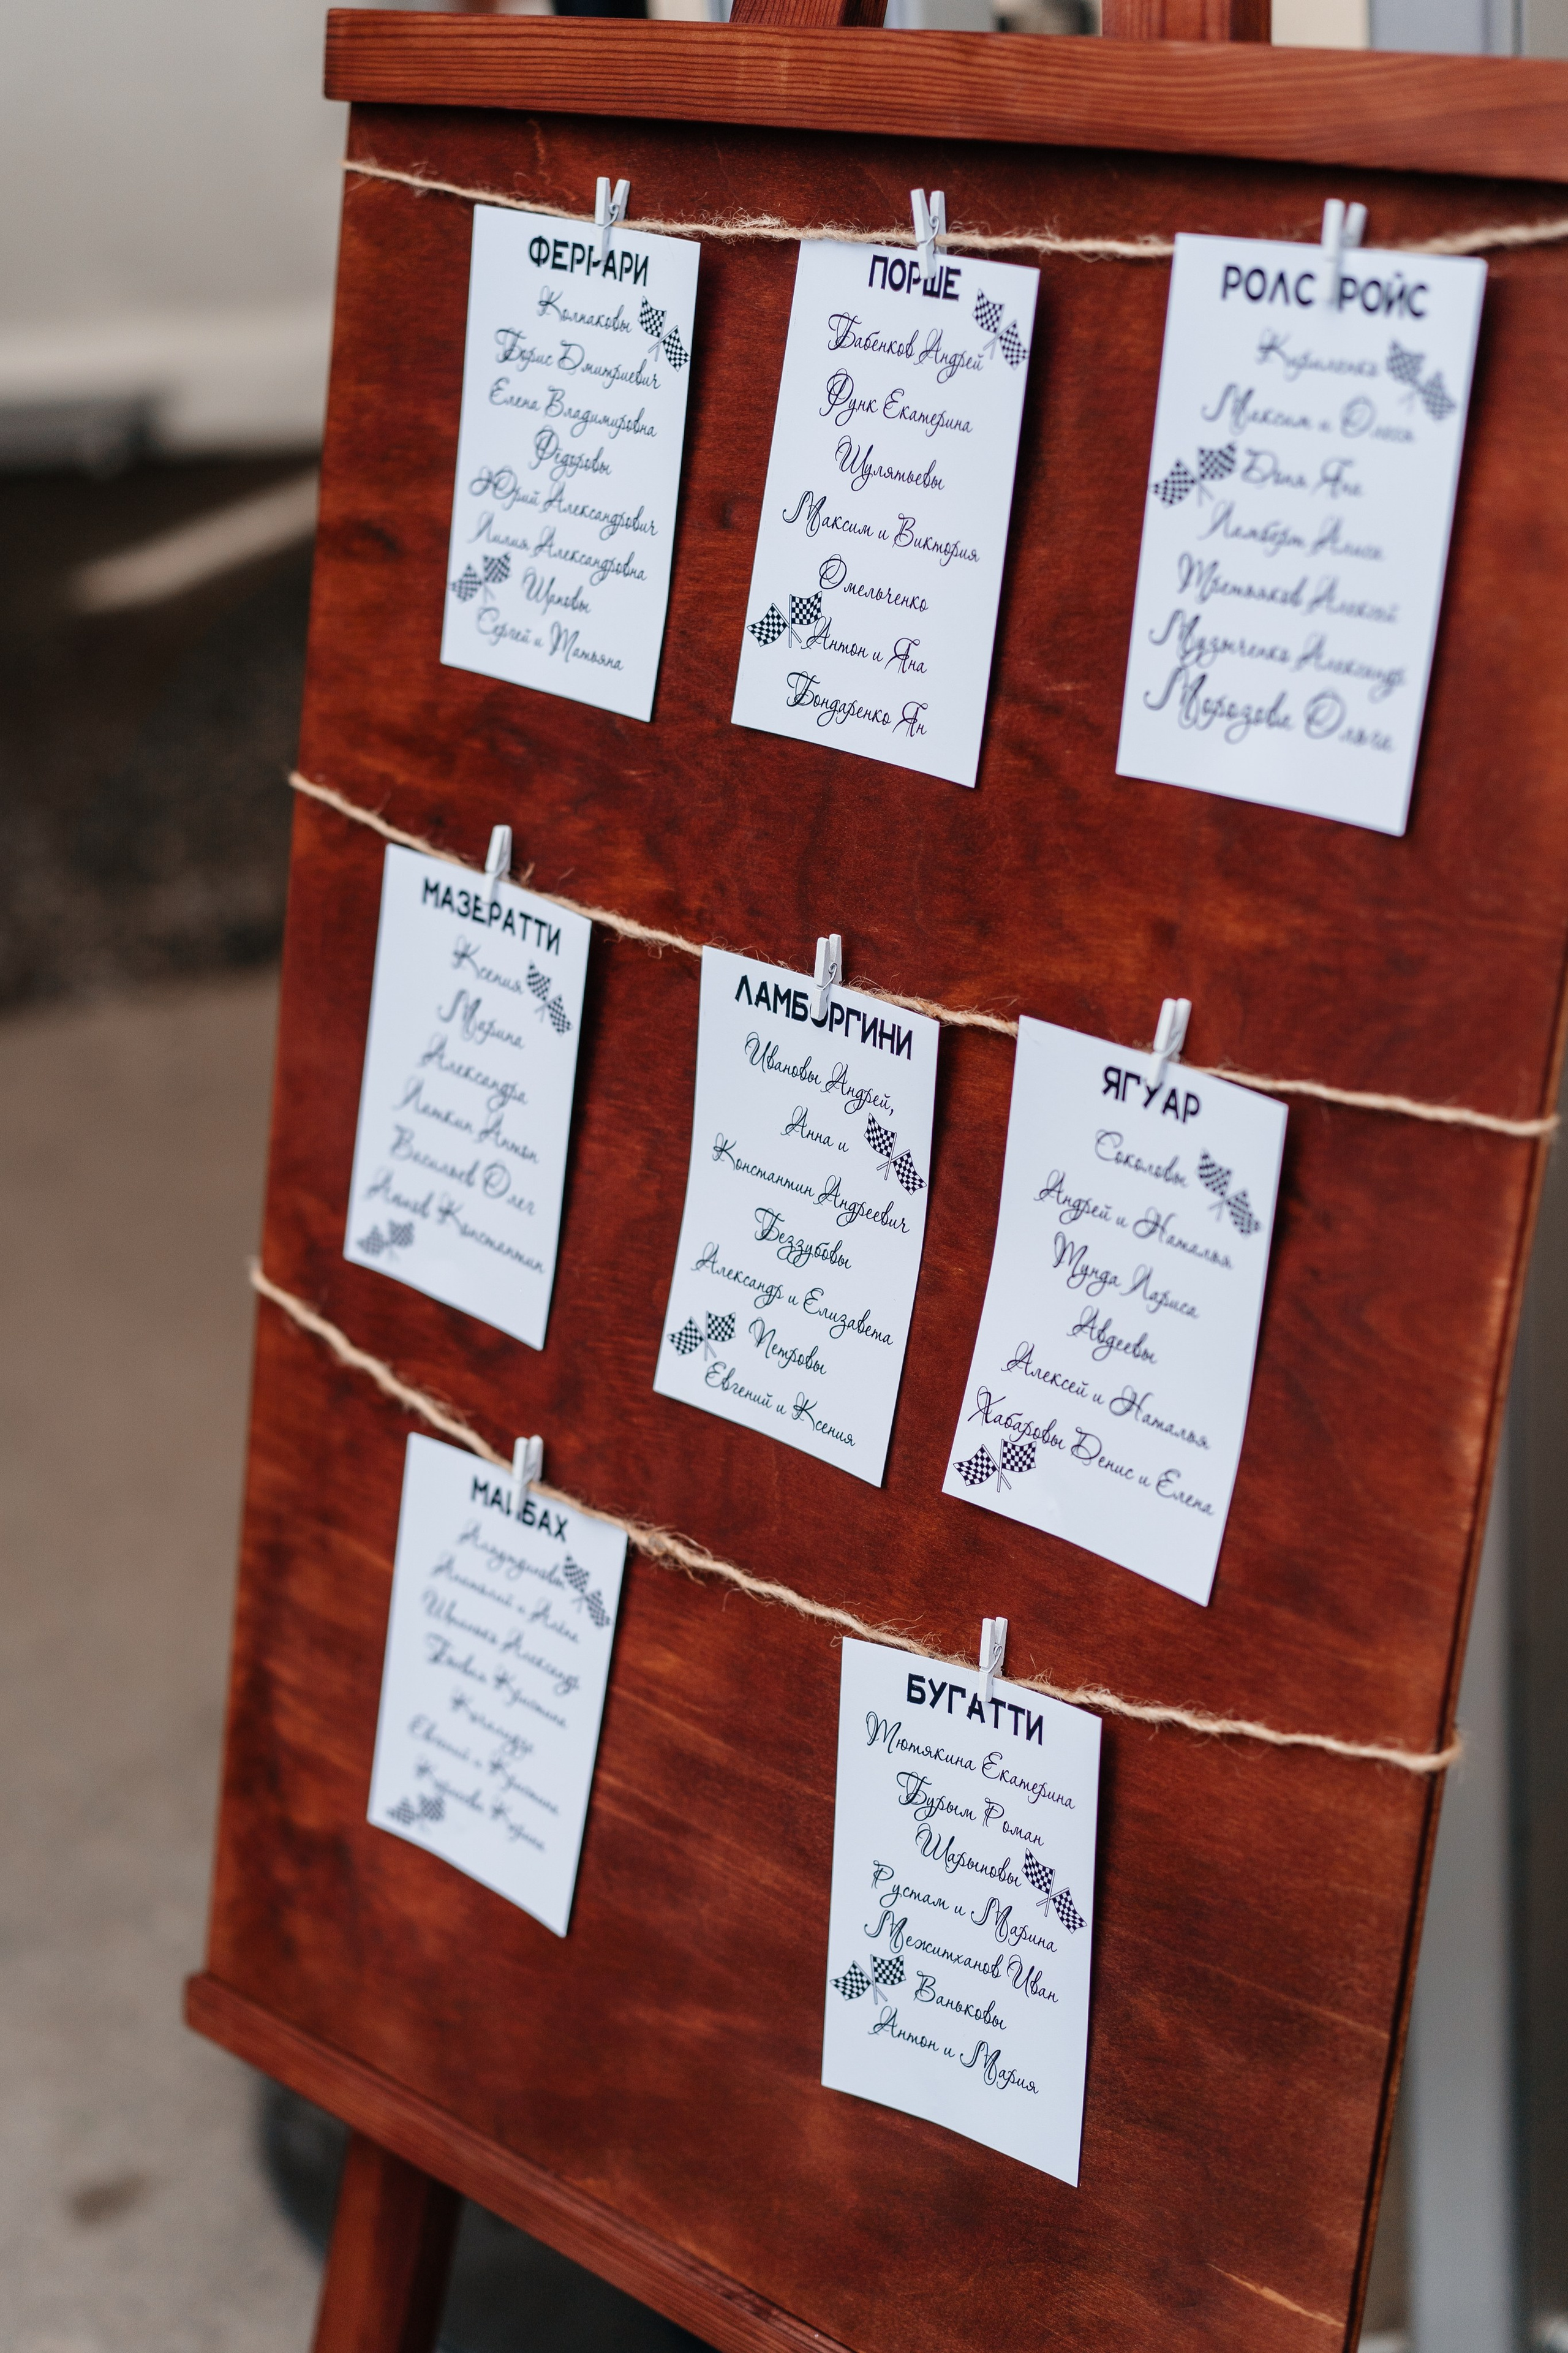 ФЕРРАРИ
Колпаковы
Борис Дмитриевич
Елена Владимировна
Фёдоровы
Юрий Александрович
Лилия Александровна
Щаповы
Сергей и Татьяна
ПОРШЕ
Бабенков Андрей
Функ Екатерина
Шулятьевы
Максим и Виктория
Омельченко
Антон и Яна
Бондаренко Ян
РОЛС РОЙС
Кириленко
Максим и Олеся
Яна
Ламберт Алиса
Третьяков Алексей
Музыченко Александр
Морозова Ольга
МАЗЕРАТТИ
Ксения
Марина
Александра
Латкин Антон
Васильев Олег
Константин
ЛАМБОРГИНИ
Ивановы Андрей,
Анна и
Константин Андреевич
Беззубовы
Александр и Елизавета
Петровы
Евгений и Ксения
ЯГУАР
Соколовы
Андрей и Наталья
Тунда Лариса
Авдеевы
Алексей и Наталья
Хабаровы Денис и Елена
МАЙБАХ
и Алёна
Александр
Кристина
Евгений и Кристина
БУГАТТИ
Тютякина Екатерина
Бурым Роман
Шарыповы
Рустам и Марина
Межитханов Иван
Ваньковы
Антон и Мария